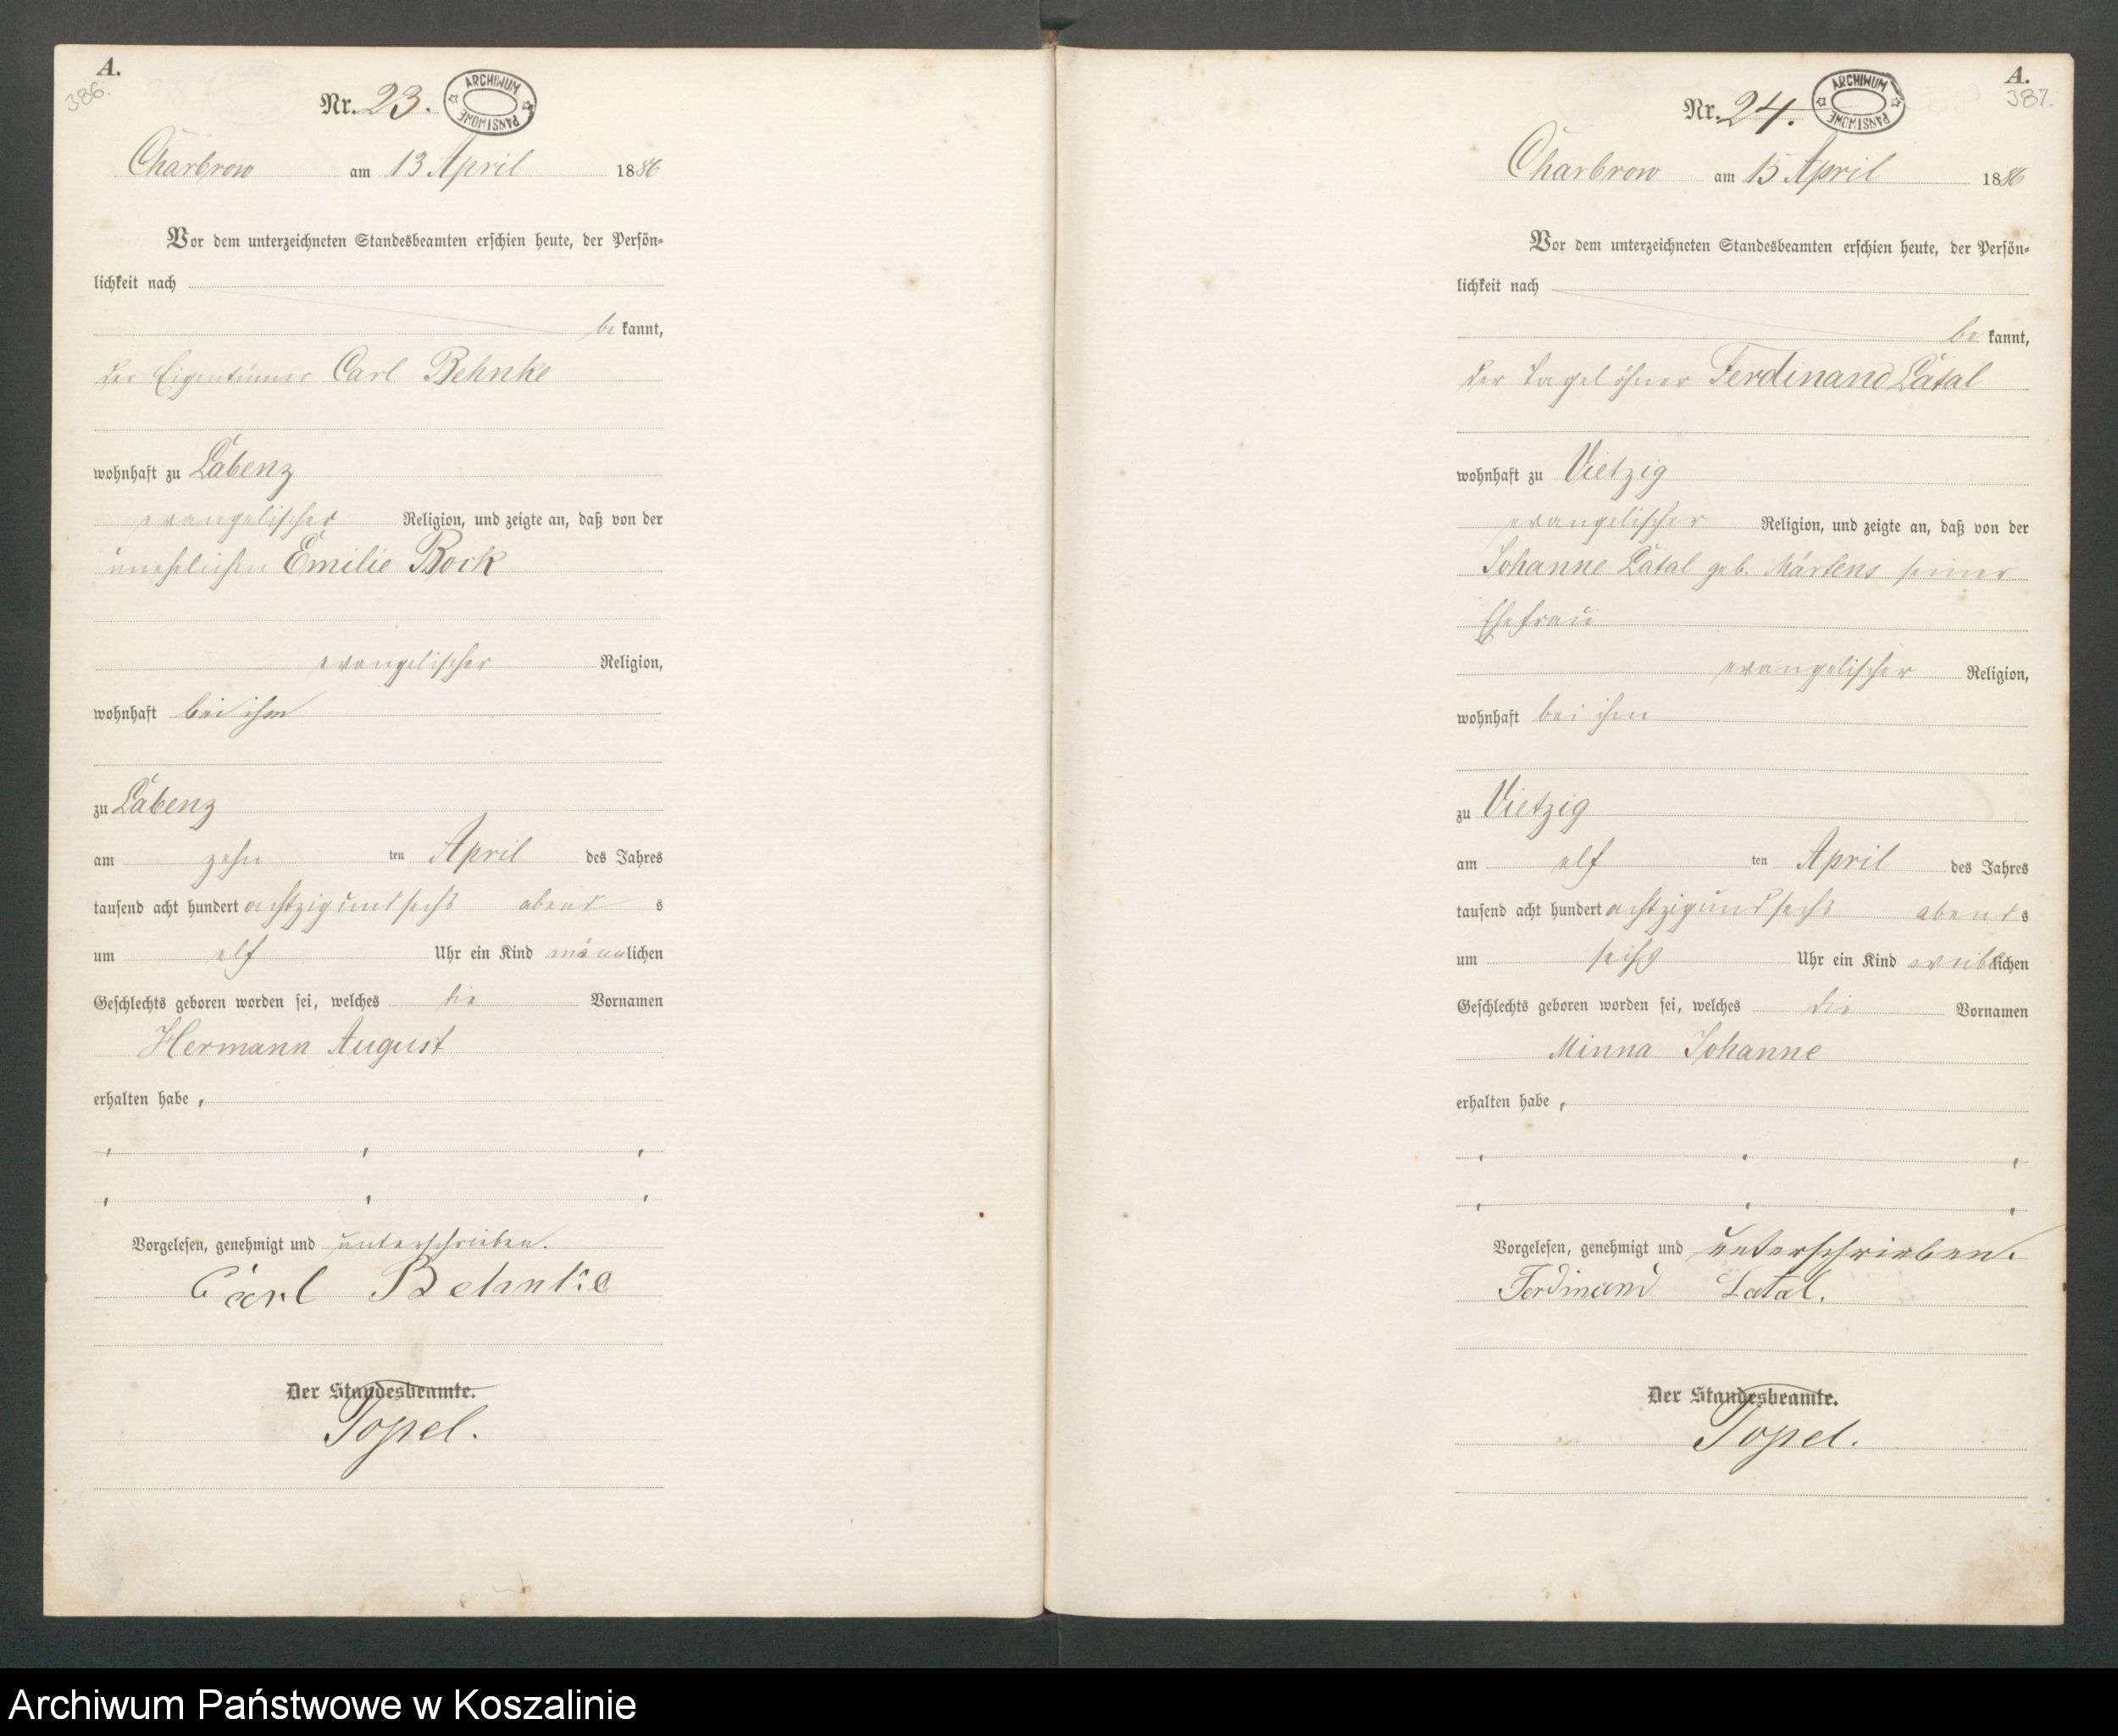 A.
386.
Nr. 23.
ARCHIWUM PAŃSTWOWE
Charbrow am 13 April 1886
Vor dem unterzeichneten Standesbeamten erschien heute, der Persön-
lichkeit nach
be kannt,
der Eigentümer Carl Behnke
wohnhaft zu Labenz
evangelischer Religion, und zeigte an, daß von der
unehelichen Emilie Bock
evangelischer Religion,
wohnhaft bei ihm
zu Labenz
am zehn ten April des Jahres
tausend acht hundert achtzig und sechs abend s
um elf Uhr ein Kind männlichen
Geschlechts geboren worden sei, welches die Vornamen
Hermann August
erhalten habe,
Vorgelesen, genehmigt und unterschrieben.
Carl Behnke
Der Standesbeamte.
Topel.
A.
387.
Nr. 24.
ARCHIWUM PAŃSTWOWE
Charbrow am 15 April 1886
Vor dem unterzeichneten Standesbeamten erschien heute, der Persön-
lichkeit nach
be kannt,
der Tagelöhner Ferdinand Latal
wohnhaft zu Vietzig
evangelischer Religion, und zeigte an, daß von der
Johanne Latal geb. Märtens seiner
Ehefrau
evangelischer Religion,
wohnhaft bei ihm
zu Vietzig
am elf ten April des Jahres
tausend acht hundert achtzig und sechs abend s
um sechs Uhr ein Kind weiblichen
Geschlechts geboren worden sei, welches die Vornamen
Minna Johanne
erhalten habe,
Vorgelesen, genehmigt und unterschrieben.
Ferdinand Latal.
Der Standesbeamte.
Topel.
Archiwum Państwowe w Koszalinie